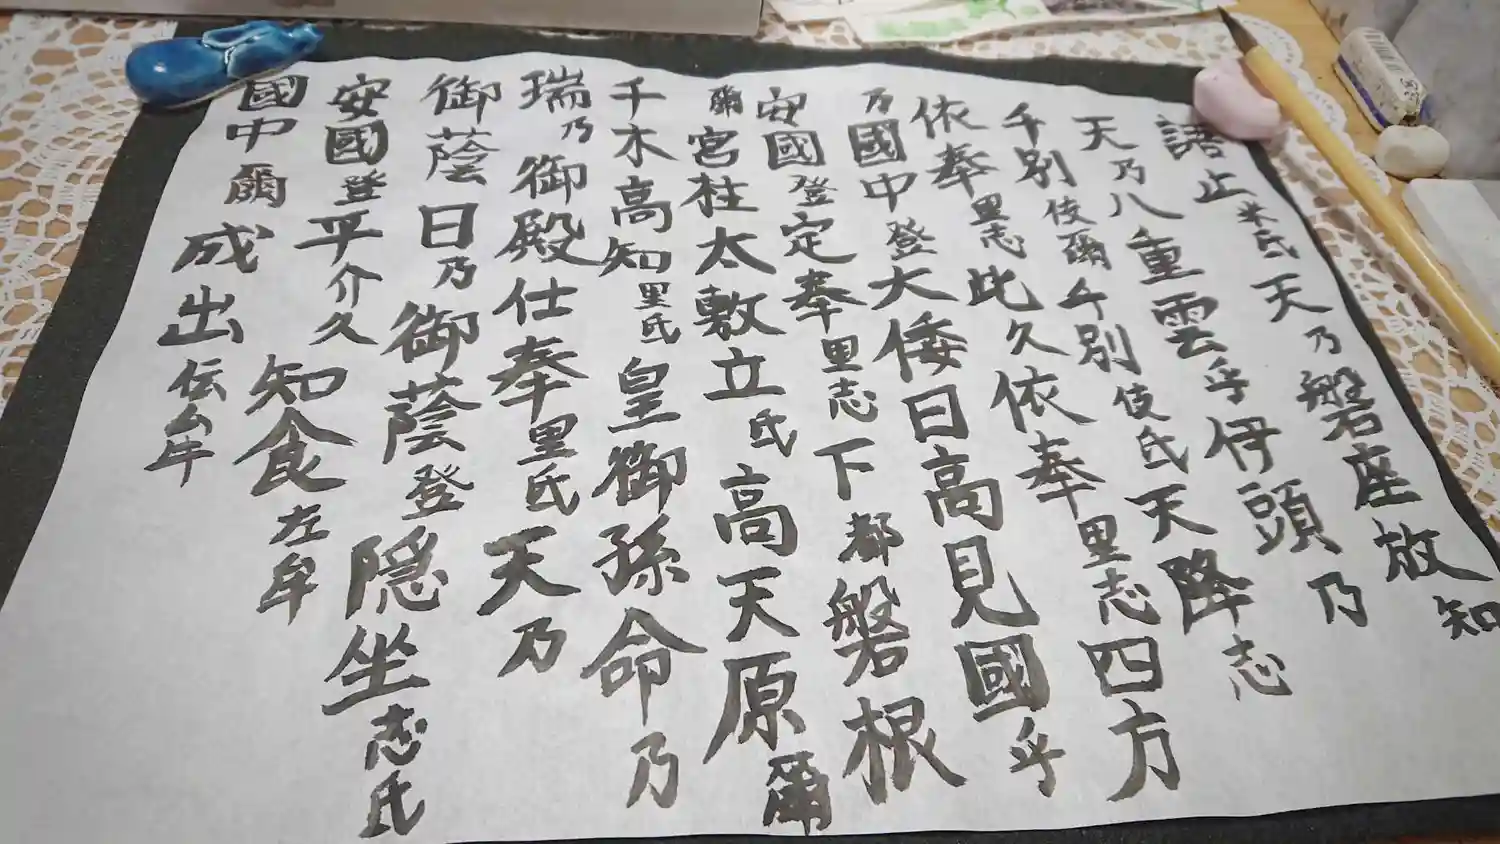 語止米氐天乃磐座放知
天乃八重雲乎伊頭乃
千別伎爾千別伎氐天降志
依奉里志此久依奉里志四方
乃國中登大倭日高見國乎
安國登定奉里志下都磐根
爾宮柱太敷立氐高天原爾
千木高知里氐皇御孫命乃
瑞乃御殿仕奉里氐天乃
御蔭日乃御蔭登隠坐志氐
安國登平介久知食左牟
國中爾成出伝厶牟